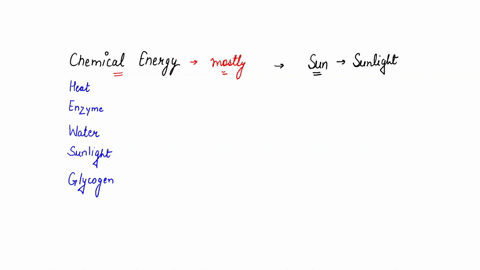 Chemical Energy → mostly → Sun → Sunlight
Heat
Enzyme
Water
Sunlight
Glycogen